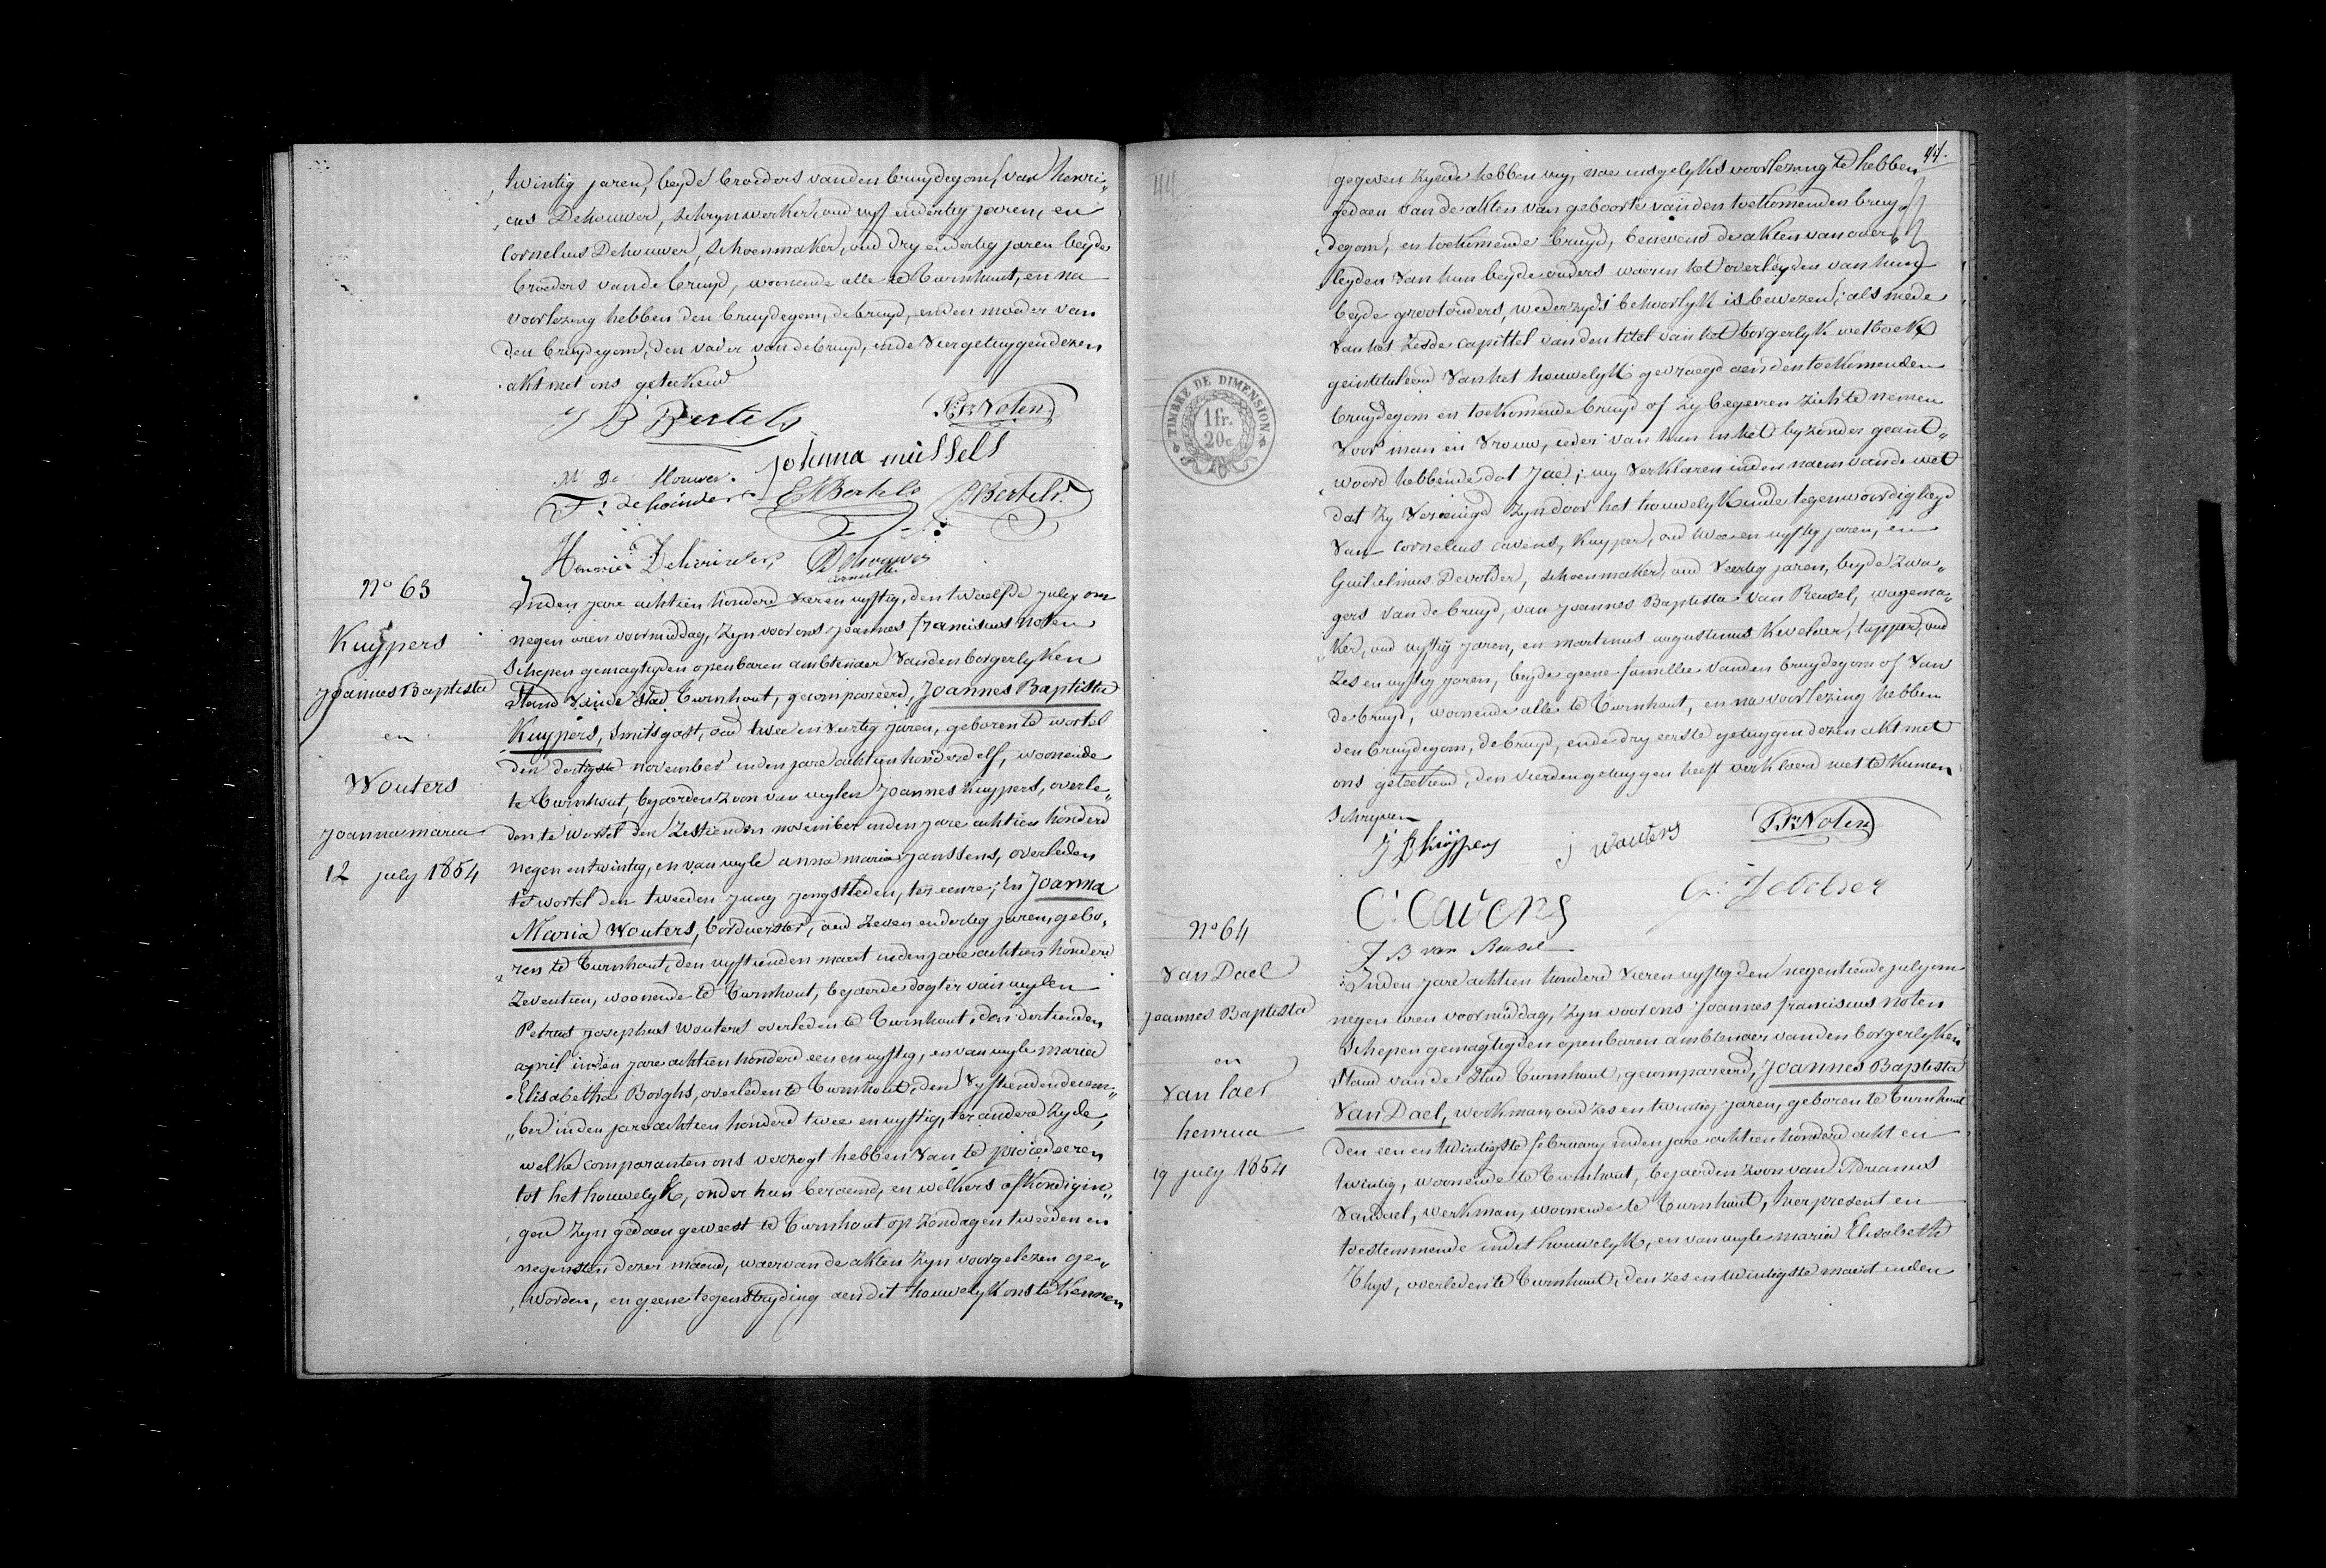 twintig jaren, beyde broeders vanden bruydegom, van Henri„
cus Dehouwer, schrynwerker, oud vyf endertig jaren, en
Cornelius Dehouwer, schoenmaker, oud dry endertig jaren beyde
broeders vande bruyd, woonende alle te Turnhout, en na
voorlezing hebben den bruydegom, de bruyd, enden moeder van
den bruydegom, den vader vande bruyd, ende vier getuygen dezen
akt met ons geteekend
J B Bertels
J. F. Noten
Johanna mussels
M De Houwer.
Bertels
J Bertels
Dehouwer
Cornelius
N° 63
Kuypers
Joannes Baptista
en
Wouters
Joanna maria
12 july 1854
Inden jare achtien honderd vierenvyftig, den twaelfde july om
negen uren voormiddag, zyn voor ons Joannes Franciscus Noten
Schepen gemagtigden openbaren ambtenaer vanden borgerlyken
Stand vande Stad Turnhout, gecompareerd, Joannes Baptista
Kuypers, smitsgast, oud twee en veertig jaren, geboren te wortel
den dertigste november inden jare achtien honderd elf, woonende
te Turnhout, bejaerden zoon van wylen Joannes Kuypers, overle„
den te Wortel den Zestienden november inden jare achtien honderd
negen entwintig, en van wyle anna maria Janssens, overleden
te wortel den tweeden juny jongstleden, ter eenre; En Joanna
Maria Wouters, borduerster, oud zeven endertig jaren, gebo„
ren te Turnhout, den vyftienden maert inden jare achtien honderd
Zeventien, woonende te Turnhout, bejaerde dogter van wylen
Petrus Josephus Wouters overleden te Turnhout, den dertienden
april inden jare achtien honderd een en vyftig, en van wyle maria
Elisabetha Borghs, overleden te Turnhout, den vyftienden decem„
„ber inden jare achtien honderd twee en vyftig, ter andere zyde,
welke comparanten ons verzogt hebben van te procedeeren
tot het houwelyk, onder hun beraemd, en welkers afkondigin„
gen zyn gedaen geweest te Turnhout op zondagen tweeden en
negensten dezer maend, waervan de akten zyn voorgelezen ge„
worden, en geene tegenstryding aen dit houwelyk ons te kennen
44.
44
gegeven zynde hebben wy, nae insgelyks voorlezing te hebben
gedaen van de akten van geboorte vanden toekomenden bruy„
degom, en toekomende bruyd, benevens de akten van over„
leyden van hun beyde ouders waerin het overleyden van hun
beyde grootouders, wederzyds behoorlyk is bewezen; als mede
van het zesde capittel vanden titel van het borgerlyk wetboek
geintituleerd van het houwelyk gevraegd aen den toekomenden
bruydegom en toekomende bruyd of zy begeeren zich te nemen
voor man en vrouw, ieder van hun in het byzonder geand„
woord hebbende dat Jae; wy verklaren inden naem vande wet
dat zy vereenigd zyn door het houwelyk inde tegenwoordigheyd
van Cornelius Cavens, Kuyper, oud twee en vyftig jaren, en
Guilielmus Devolder, schoenmaker, oud veertig jaren, beyde zwa„
gers van de bruyd, van Joannes Baptista van Reusel, wagema„
„ker, oud vyftig jaren, en martinus augustinus Kwelaer, tapper, oud
zes en vyftig jaren, beyde geene famillie vanden bruydegom of van
de bruyd, woonende alle te Turnhout, en na voorlezing hebben
den bruydegom, de bruyd, ende dry eerste getuygen dezen akt met
ons geteekend, den vierden getuygen heeft verklaerd niet te kunnen
Schryven
J B Kuypers
J wouters
J. F. Noten
C: Cavens
G: Devolder
J B van Reusel
TIMBRE DE DIMENSION
1fr.
20c
N° 64
Van Dael
Joannes Baptista
en
Van laer
henrica
19 july 1854
Inden jare achtien honderd vierenvyftig den negentiende july om
negen uren voormiddag, zyn voor ons Joannes franciscus noten
Schepen gemagtigden openbaren ambtenaer vanden borgerlyken
Stand vande Stad Turnhout, gecompareerd, Joannes Baptista
Van Dael, werkman, oud zes en twintig jaren, geboren te Turnhout
den een en twintigste february inden jare achtien honderd acht en
twintig, woonende te Turnhout, bejaerden zoon van Adrianus
Vandael, werkman, woonende te Turnhout, hier present en
toestemmende in dit houwelyk, en van wyle maria Elisabeth
Thys, overleden te Turnhout, den zes en twintigste maert inden